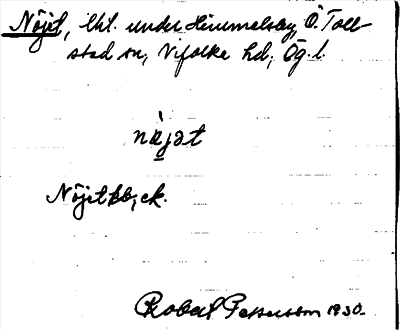 Nöjet, lht. under Himmelsby, Ö. Toll
stad sn, Vifolka hd, Ög. l.
nø̀jət
Nöjet
Robert Pettersson 1930.